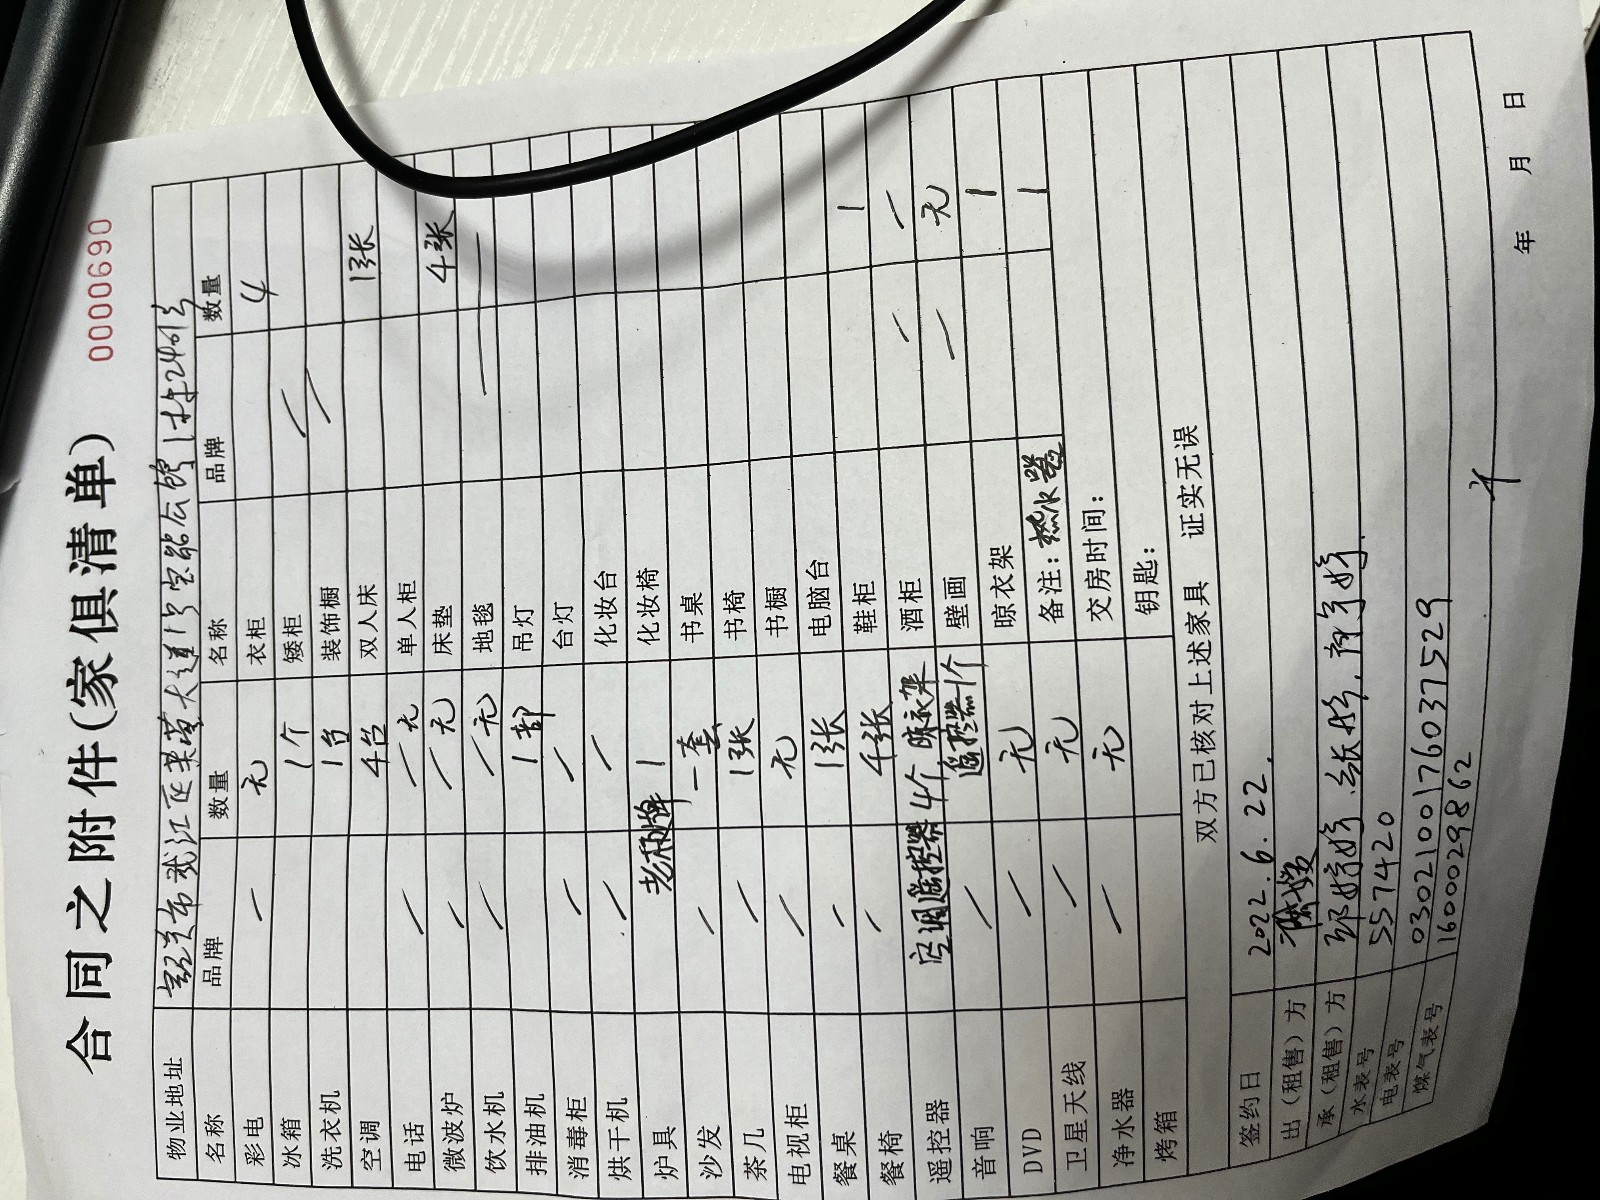 合同之附件(家俱清单)
0000690
物业地址 大道1号 公馆1栋2401号
名称 品牌 数量 名称 品牌 数量
彩电 — 无 衣柜 4
冰箱 1个 矮柜
洗衣机 1台 装饰橱
空调 4台 双人床 1张
电话 — 一无 单人柜
微波炉 — 一无 床垫 4张
饮水机 — 一无 地毯 —
排油机 1部 吊灯
消毒柜 — — 台灯
烘干机 — — 化妆台
炉具 老板牌 1 化妆椅
沙发 — 一套 书桌
茶几 — 1张 书椅
电视柜 — 无 书橱
餐桌 — 1张 电脑台
餐椅 — 4张 鞋柜 1
遥控器 空调遥控器4个 晾衣架遥控器1个 酒柜 — —
音响 — 壁画 — 无
DVD — 无 晾衣架 1
卫星天线 — 无 备注:热水器 1
净水器 — 无 交房时间:
烤箱 钥匙:
双方已核对上述家具 证实无误
签约日 2022.6.22.
出(租售)方
承(租售)方
水表号 557420
电表号 0302100176037529
煤气表号 1600029862
年 月 日